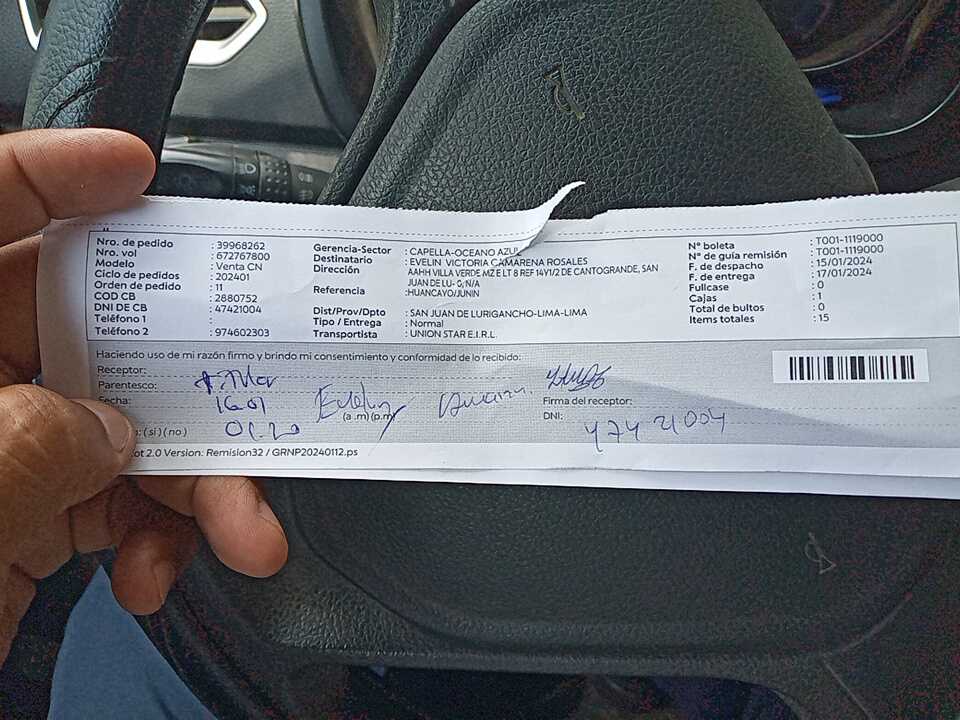 Nro. de pedido : 39968262
Nro. vol : 672767800
Modelo : Venta CN
Ciclo de pedidos : 202401
Orden de pedido : 11
COD CB : 2880752
DNI DE CB : 47421004
Teléfono 1 :
Teléfono 2 : 974602303
Gerencia-Sector : CAPELLA-OCEANO AZUL
Destinatario : EVELIN VICTORIA CAMARENA ROSALES
Dirección AAHH VILLA VERDE MZ E LT 8 REF 14Y1/2 DE CANTOGRANDE, SAN
JUAN DE LU- 0; N/A
Referencia :HUANCAYO/JUNIN
Dist/Prov/Dpto : SAN JUAN DE LURIGANCHO-LIMA-LIMA
Tipo / Entrega : Normal
Transportista : UNION STAR E.I.R.L.
N° boleta : T001-1119000
N° de guía remisión : T001-1119000
F. de despacho : 15/01/2024
F. de entrega : 17/01/2024
Fullcase : 0
Cajas : 1
Total de bultos : 0
Items totales : 15
Haciendo uso de mi razón firmo y brindo mi consentimiento y conformidad de lo recibido:
Receptor:
Parentesco:
Fecha: 16.01 Evelin
(a .m) (p.m)
Firma del receptor:
: ( si ) ( no ) 01.20
DNI: 47421004
ot 2.0 Version: Remision32 / GRNP20240112.ps